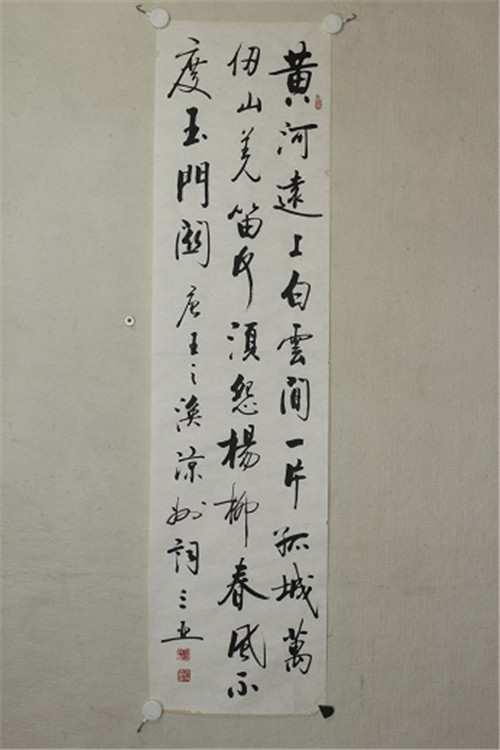 黄河遠上白雲間一片孤城萬
仞山羌笛何須怨楊柳春風不
度玉門關 唐王之渙涼州詞 三亚